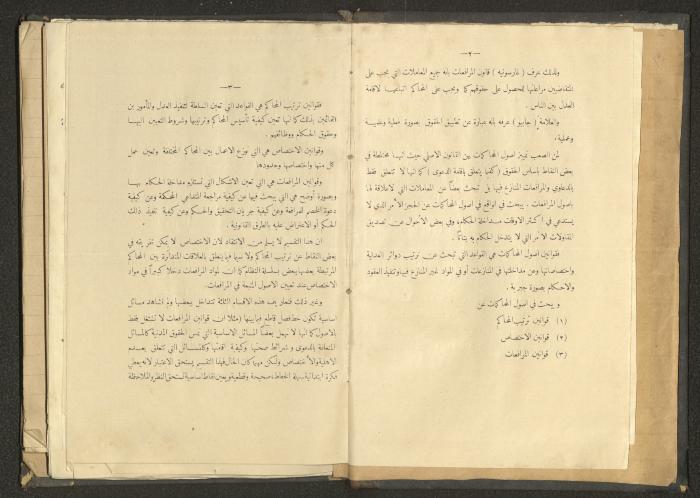 — ٢ —
ولذلك عرف ( غارسونيه ) قانون المرافعات بانه جميع المعاملات التي يجب على
المتقاضيين مراعاتها للحصول على حقوقهم كما ويجب على المحاكم اتباعها لاقامة
العدل بين الناس .
والعلامة ( جابيو ) عرفه بانه عبارة عن تطبيق الحقوق بصورة فعلية
وعملية .
لمن الصعب تمييز اصول المحاكمات بين القانون الاصلي حيث انها مختلطة في
بعض النقاط باساس الحقوق ( كفيما يتعلق باقامة الدعوى ) كما انها لا تتعلق فقط
بالدعاوي والمرافعات المتنازع فيها بل تبحث بعضاً عن المعاملات التي لاعلاقة لها
باصول المرافعات . يبحث في الواقع في اصول المحاكمات عن الحجز الامر الذي لا
يستدعي في اكثر الاوقات مداخلة الحكام، وفي بعض الاحوال عن تصديق
المقاولات الامر التي لا يتدخل الحكام به بتاتاً .
فقوانين اصول المحاكمات هي القواعد التي تبحث عن ترتيب دوائر العدلية
واختصاصاتها وعن مداخلتها في المنازعات أو في المواد غير المتنازع فيها وتنفيذ العقود
والاحكام بصورة جبرية .
و يبحث في اصول المحاكمات عن
(١) قوانين ترتيب المحاكم
(٢) قوانين الاختصاص
(٣) قوانين المرافعات
— ٣ —
فقوانين ترتيب المحاكم هي القواعد التي تعين السلطة لتنفيذ العدل والمأمورين
القائمين بذلك كما انها تعين كيفية تأسيس المحاكم وترتيبها وشروط التعيين اليها
وحقوق الحكام ووظائفهم .
وقوانين الاختصاص هي التي توزع الاعمال بين المحاكم المختلفة وتعين عمل
كل منها واختصاصها وحدودها
وقوانين المرافعات هي التي تعين الاشكال التي تستلزم مداخلة الحكام بها
وبصورة أوضح هي التي يبحث فيها عن كيفية مراجعة المتداعي المحكمة وعن كيفية
دعوة الخصم للمرافعة وعن كيفية جريان التحقيق والحكم وعن كيفية تنفيذ ذلك
الحكم أو الاعتراض عليه بالطرق القانونية .
ان هذا التقسيم لا يسلم من الانتقاد لان الاختصاص لا يمكن تفريقه في
بعض النقاط عن ترتيب المحاكم ولا سيما فيما يتعلق بالعلاقات المتدائرة بين المحاكم
المرتبطة بعضها ببعض بسلسلة النظام كما ان لمواد المرافعات دخلاً كبيراً في مواد
الاختصاص عند تعيين الاصول المتبعة في المرافعات.
وغير ذلك فتعاريف هذه الاقسام الثلاثة تتداخل ببعضها ولم نشاهد مسائل
اساسية تكون حد فصل قاطع فيما بينها ( مثلا ان قوانين المرافعات لا تشتغل فقط
بالاصول كما انها لا تهمل بعضاً المسائل الاساسية التي تمس الحقوق المدنية كالمسائل
المتعلقة بالدعوى وشرائط صحتها وكيفية اقامتها وكالمسائل التي تتعلق بعدم
الاهلية والاختصاص ولكن مهما كان الحال فهذا التقسيم يستحق الاعتبار لانه يعطي
فكرة ابتدائية سهلة الحفاظ، صحيحة وقطعية ويعين نقاط اساسية تستحق النظر والملاحظة